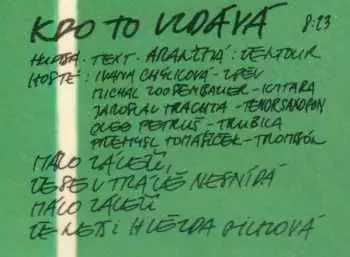 KDO TO VZDÁVÁ 8:23
HUDBA · TEXT · ARANŽMÁ : VENTOUR
HOSTÉ : IVANA CHÝLKOVÁ - ZPĚV
MICHAL - KYTARA
JAROSLAV TRACHTA - TENORSAXOFON
OLEG PETRUŠ - TRUBKA
PŘEMYSL TOMÁŠÍČEK - TROMBÓN
MÁLO ZÁLEŽÍ,
ŽE SE V TRÁVĚ NESNÍDÁ
MÁLO ZÁLEŽÍ
ŽE NEJSI HVĚZDA FILMOVÁ